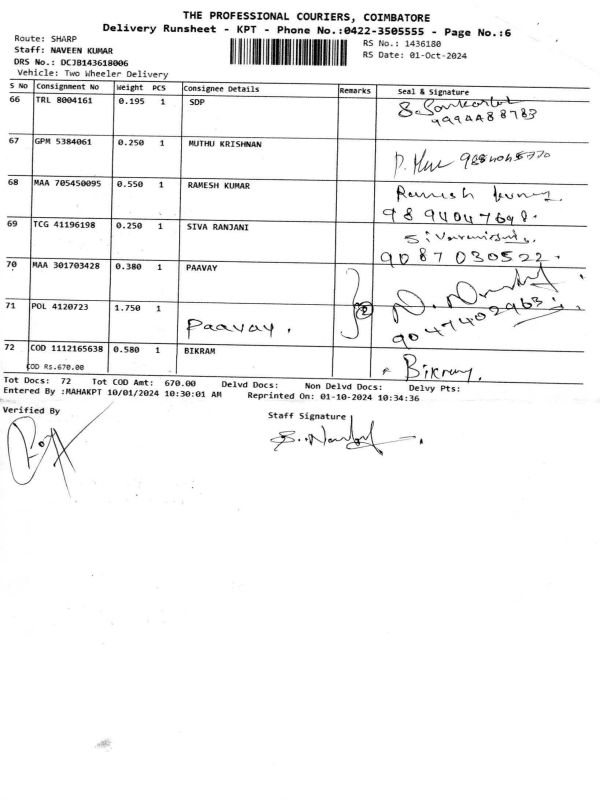 THE PROFESSIONAL COURIERS, COIMBATORE
Delivery Runsheet - KPT - Phone No.:0422-3505555 - Page No.:6
Route: SHARP
RS No.: 1436180
Staff: NAVEEN KUMAR
RS Date: 01-Oct-2024
DRS No.: DCJB143618006
Vehicle: Two Wheeler Delivery
S No Consignment No Weight PCS Consignee Details Remarks Seal & Signature
66 TRL 8004161 0.195 1 SDP
67 GPM 5384061 0.250 1 MUTHU KRISHNAN
68 MAA 705450095 0.550 1 RAMESH KUMAR Ramesh kumar
9894047698.
69 TCG 41196198 0.250 1 SIVA RANJANI
9087030522.
70 MAA 301703428 0.380 1 PAAVAY
71 POL 4120723 1.750 1 Paavay. 2 9047402963
72 COD 1112165638 0.580 1 BIKRAM Bikram.
COD Rs.670.00
Tot Docs: 72 Tot COD Amt: 670.00 Delvd Docs: Non Delvd Docs: Delvy Pts:
Entered By :MAHAKPT 10/01/2024 10:30:01 AM Reprinted On: 01-10-2024 10:34:36
Verified By
Staff Signature